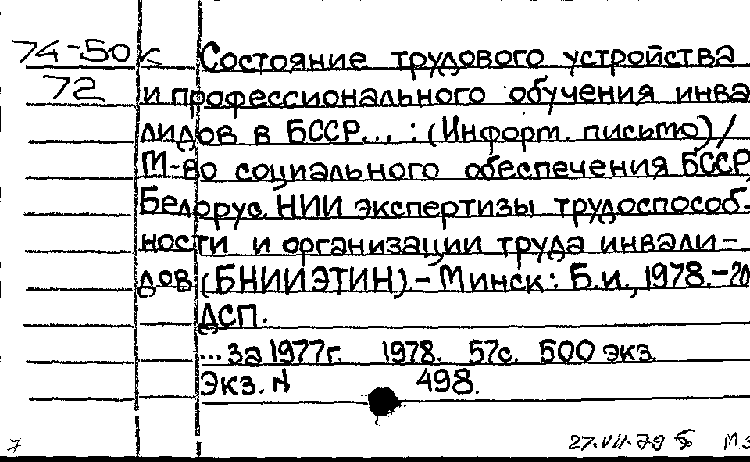 74-50 к Состояние трудового устройства
72 и профессионального обучения инва
лидов в БССР... : (Информ. письмо) /
М-во социального обеспечения БССР,
Белорус. НИИ экспертизы трудоспособ-
ности и организации труда инвали-
дов (БНИИЭТИН).- Минск: Б.и., 1978.-20
ДСП.
... за 1977г. 1978. 57с. 500 экз.
Экз. N 498.
7 27.VII.79